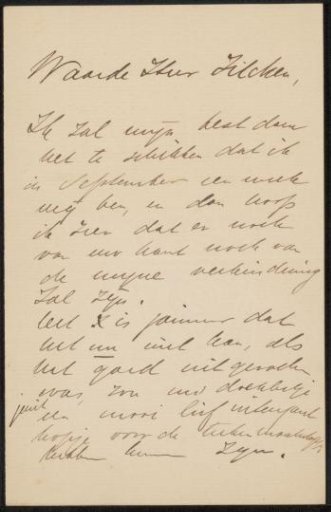 Waarde Heer Zilcken,
Ik zal mijn best doen
het te schikken dat ik
in September een week
vrij ben, en dan hoop
ik zeer dat er noch
van uw kant noch van
de mijne verhindering
zal zijn.
Het is jammer dat
het nu niet kan, als
het goed uitgevoerd
was, zou uw
juist een mooi
voor de
kunnen zijn.